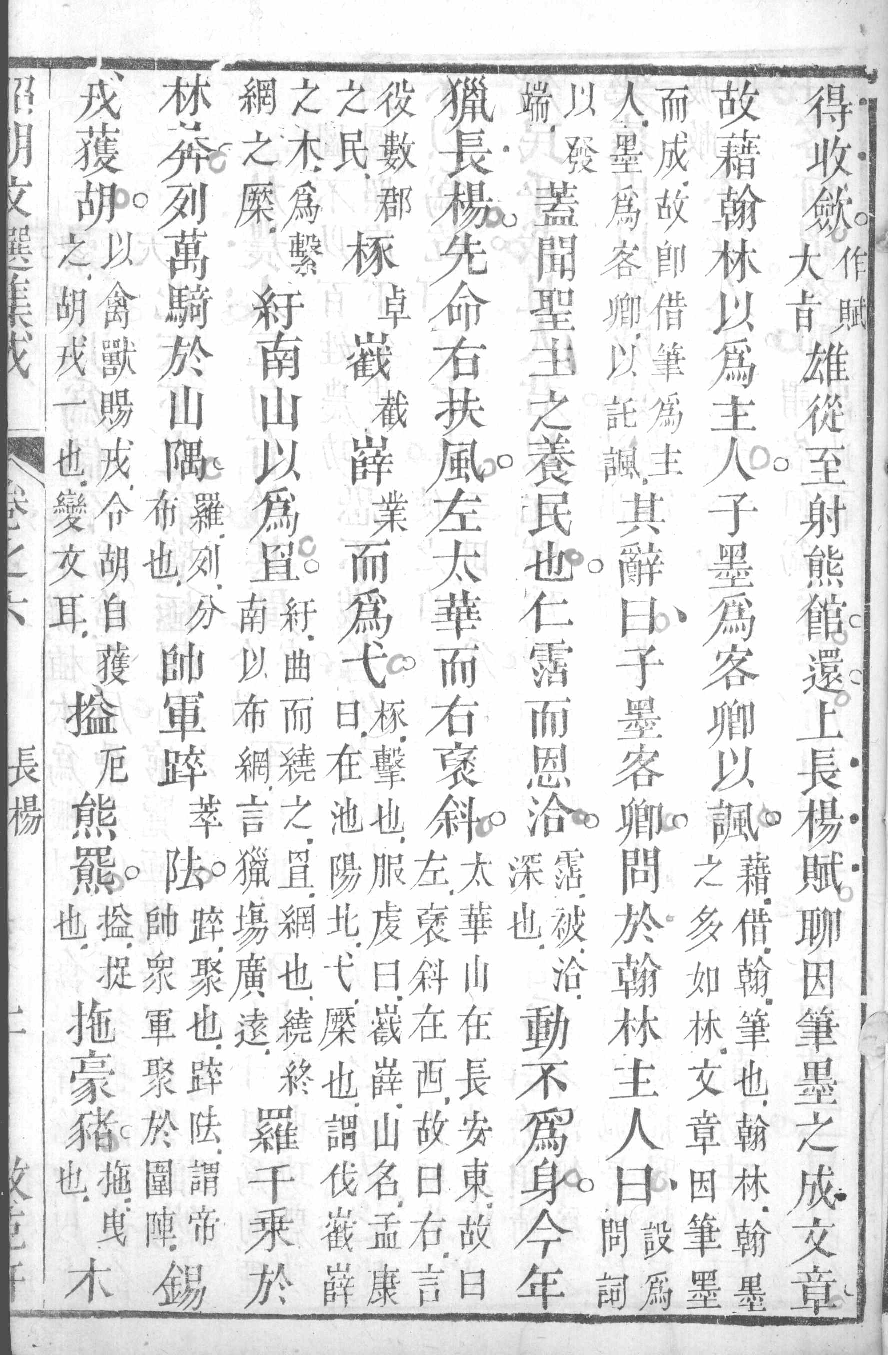 得收斂。作賦大旨雄從至射熊館還上長楊賦聊因筆墨之成文章
故藉翰林以爲主人。子墨爲客卿以諷。藉借.翰筆也.翰林.翰墨之多如林.文章因筆墨
而成.故卽借筆爲主人.墨爲客卿.以託諷.其辭曰、子墨客卿問於翰林主人曰、設爲問詞
以發端.蓋聞聖主之養民也。仁霑而恩洽。霑被.洽深也.動不爲身。今年
獵長楊。先命右扶風。左太華而右褒斜。太華山在長安東.故曰左.褒斜在西.故曰右.言
役數郡之民.椓卓嶻截嶭業而爲弋。椓.擊也.服虔曰.嶻嶭.山名.孟康曰.在池陽北.弋.橜也.謂伐嶻嶭
之木.爲繫網之橜.紆南山以爲罝。紆.曲而繞之.罝.網也.繞終南以布網.言獵場廣遠.羅千乘於
林莽。列萬騎於山隅。羅.列.分布也.帥軍踤萃阹。踤.聚也.踤阹.謂帝帥衆軍聚於圍陣.錫
戎獲胡。以禽獸賜戎.令胡自獲之.胡戎一也.變文耳.搤厄熊羆。搤.捉也.拖豪豬。拖.曳也.木
昭明文選集成 卷之六 長楊